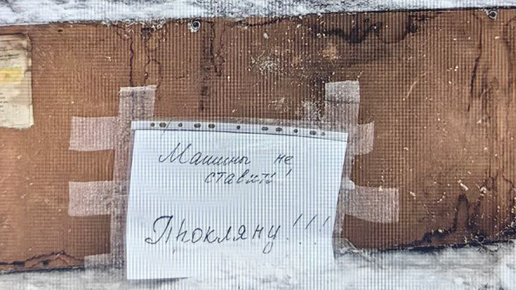 Машины не
ставить!
Прокляну!!!